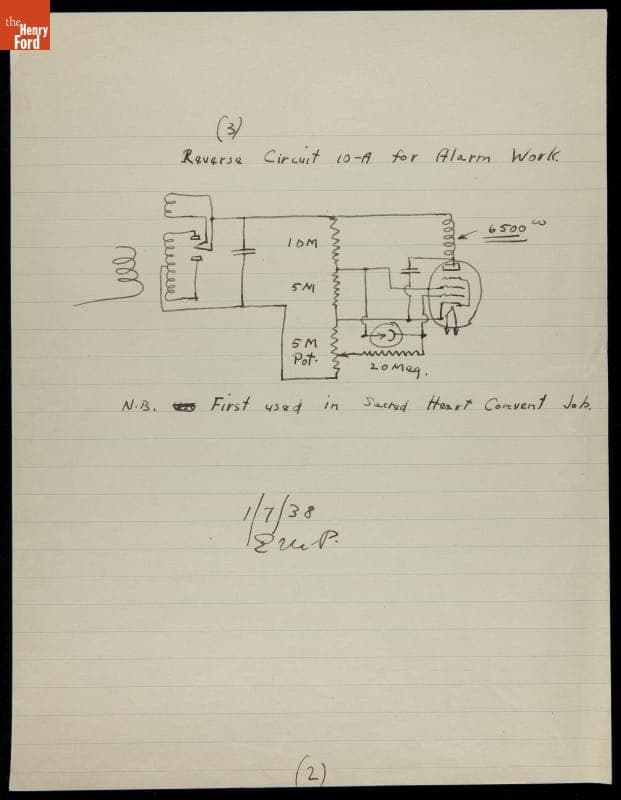 the
Henry
Ford
(3)
Reverse Circuit 10-A for Alarm Work.
6500 ω
10M
5M
5M
Pot.
20Meg.
N.B. First used in Sacred Heart Convent Job.
1/7/38
E.M.P.
(2)